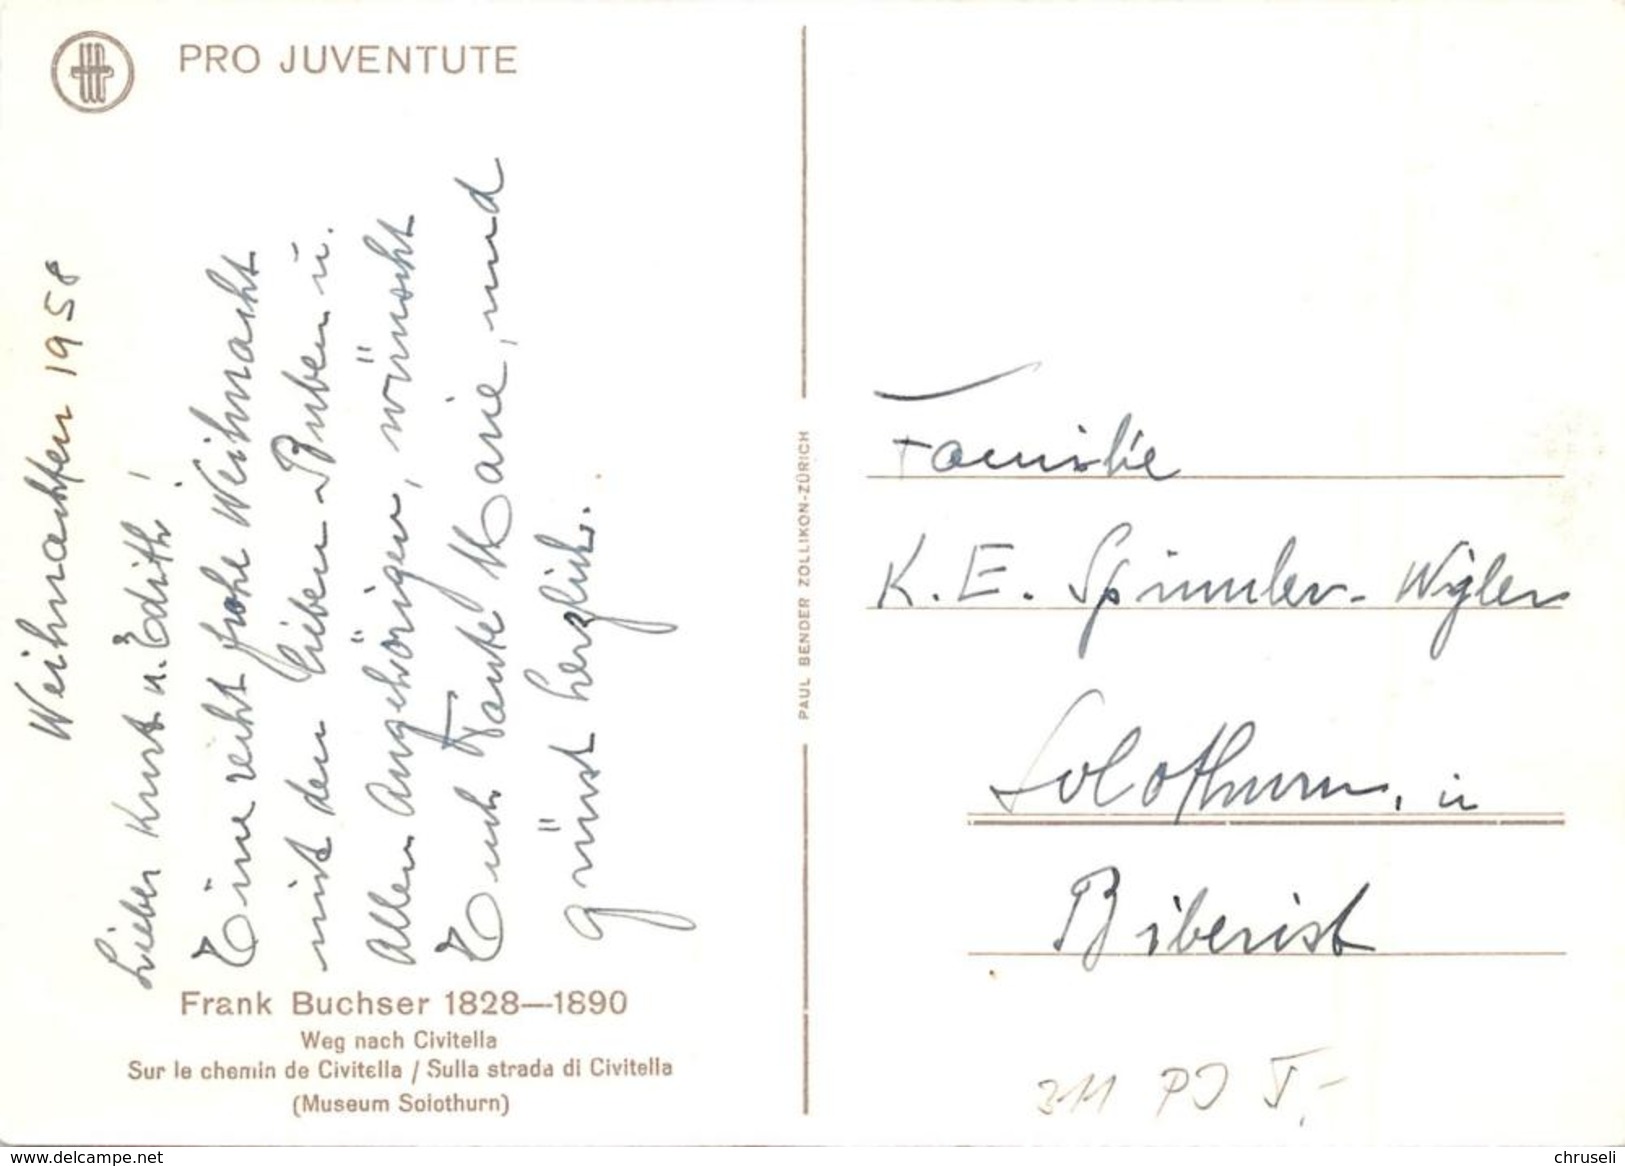 PRO JUVENTUTE
Weihnachten 1958
Lieber Kurt u. Edith!
Eine recht frohe Weihnacht
mit den lieben Buben u.
Allen Angehörigen, wünscht
Euch Tante Marie, und
grüsst herzlich.
Frank Buchser 1828—1890
Weg nach Civitella
Sur le chemin de Civitella / Sulla strada di Civitella
(Museum Solothurn)
PAUL BENDER ZOLLIKON-ZÜRICH
Familie
K. E. Spimmler-Wyler
Solothurn, in
Biberist
311 PJ 5,-
www.delcampe.net
chruseli